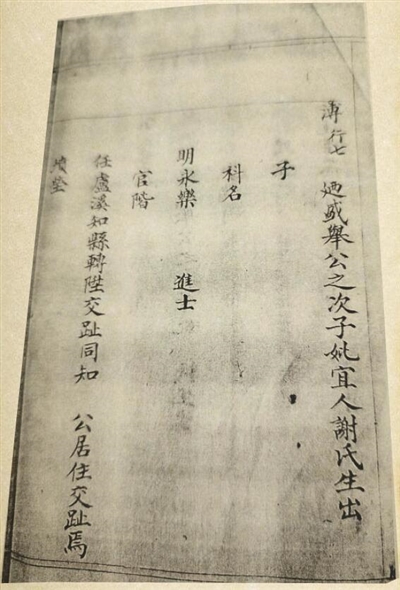 溥 行七 廼盛舉公之次子妣宜人謝氏生出
子
科名
明永樂 進士
官階
任盧溪知縣轉陞交趾同知 公居住交趾焉
墳塋